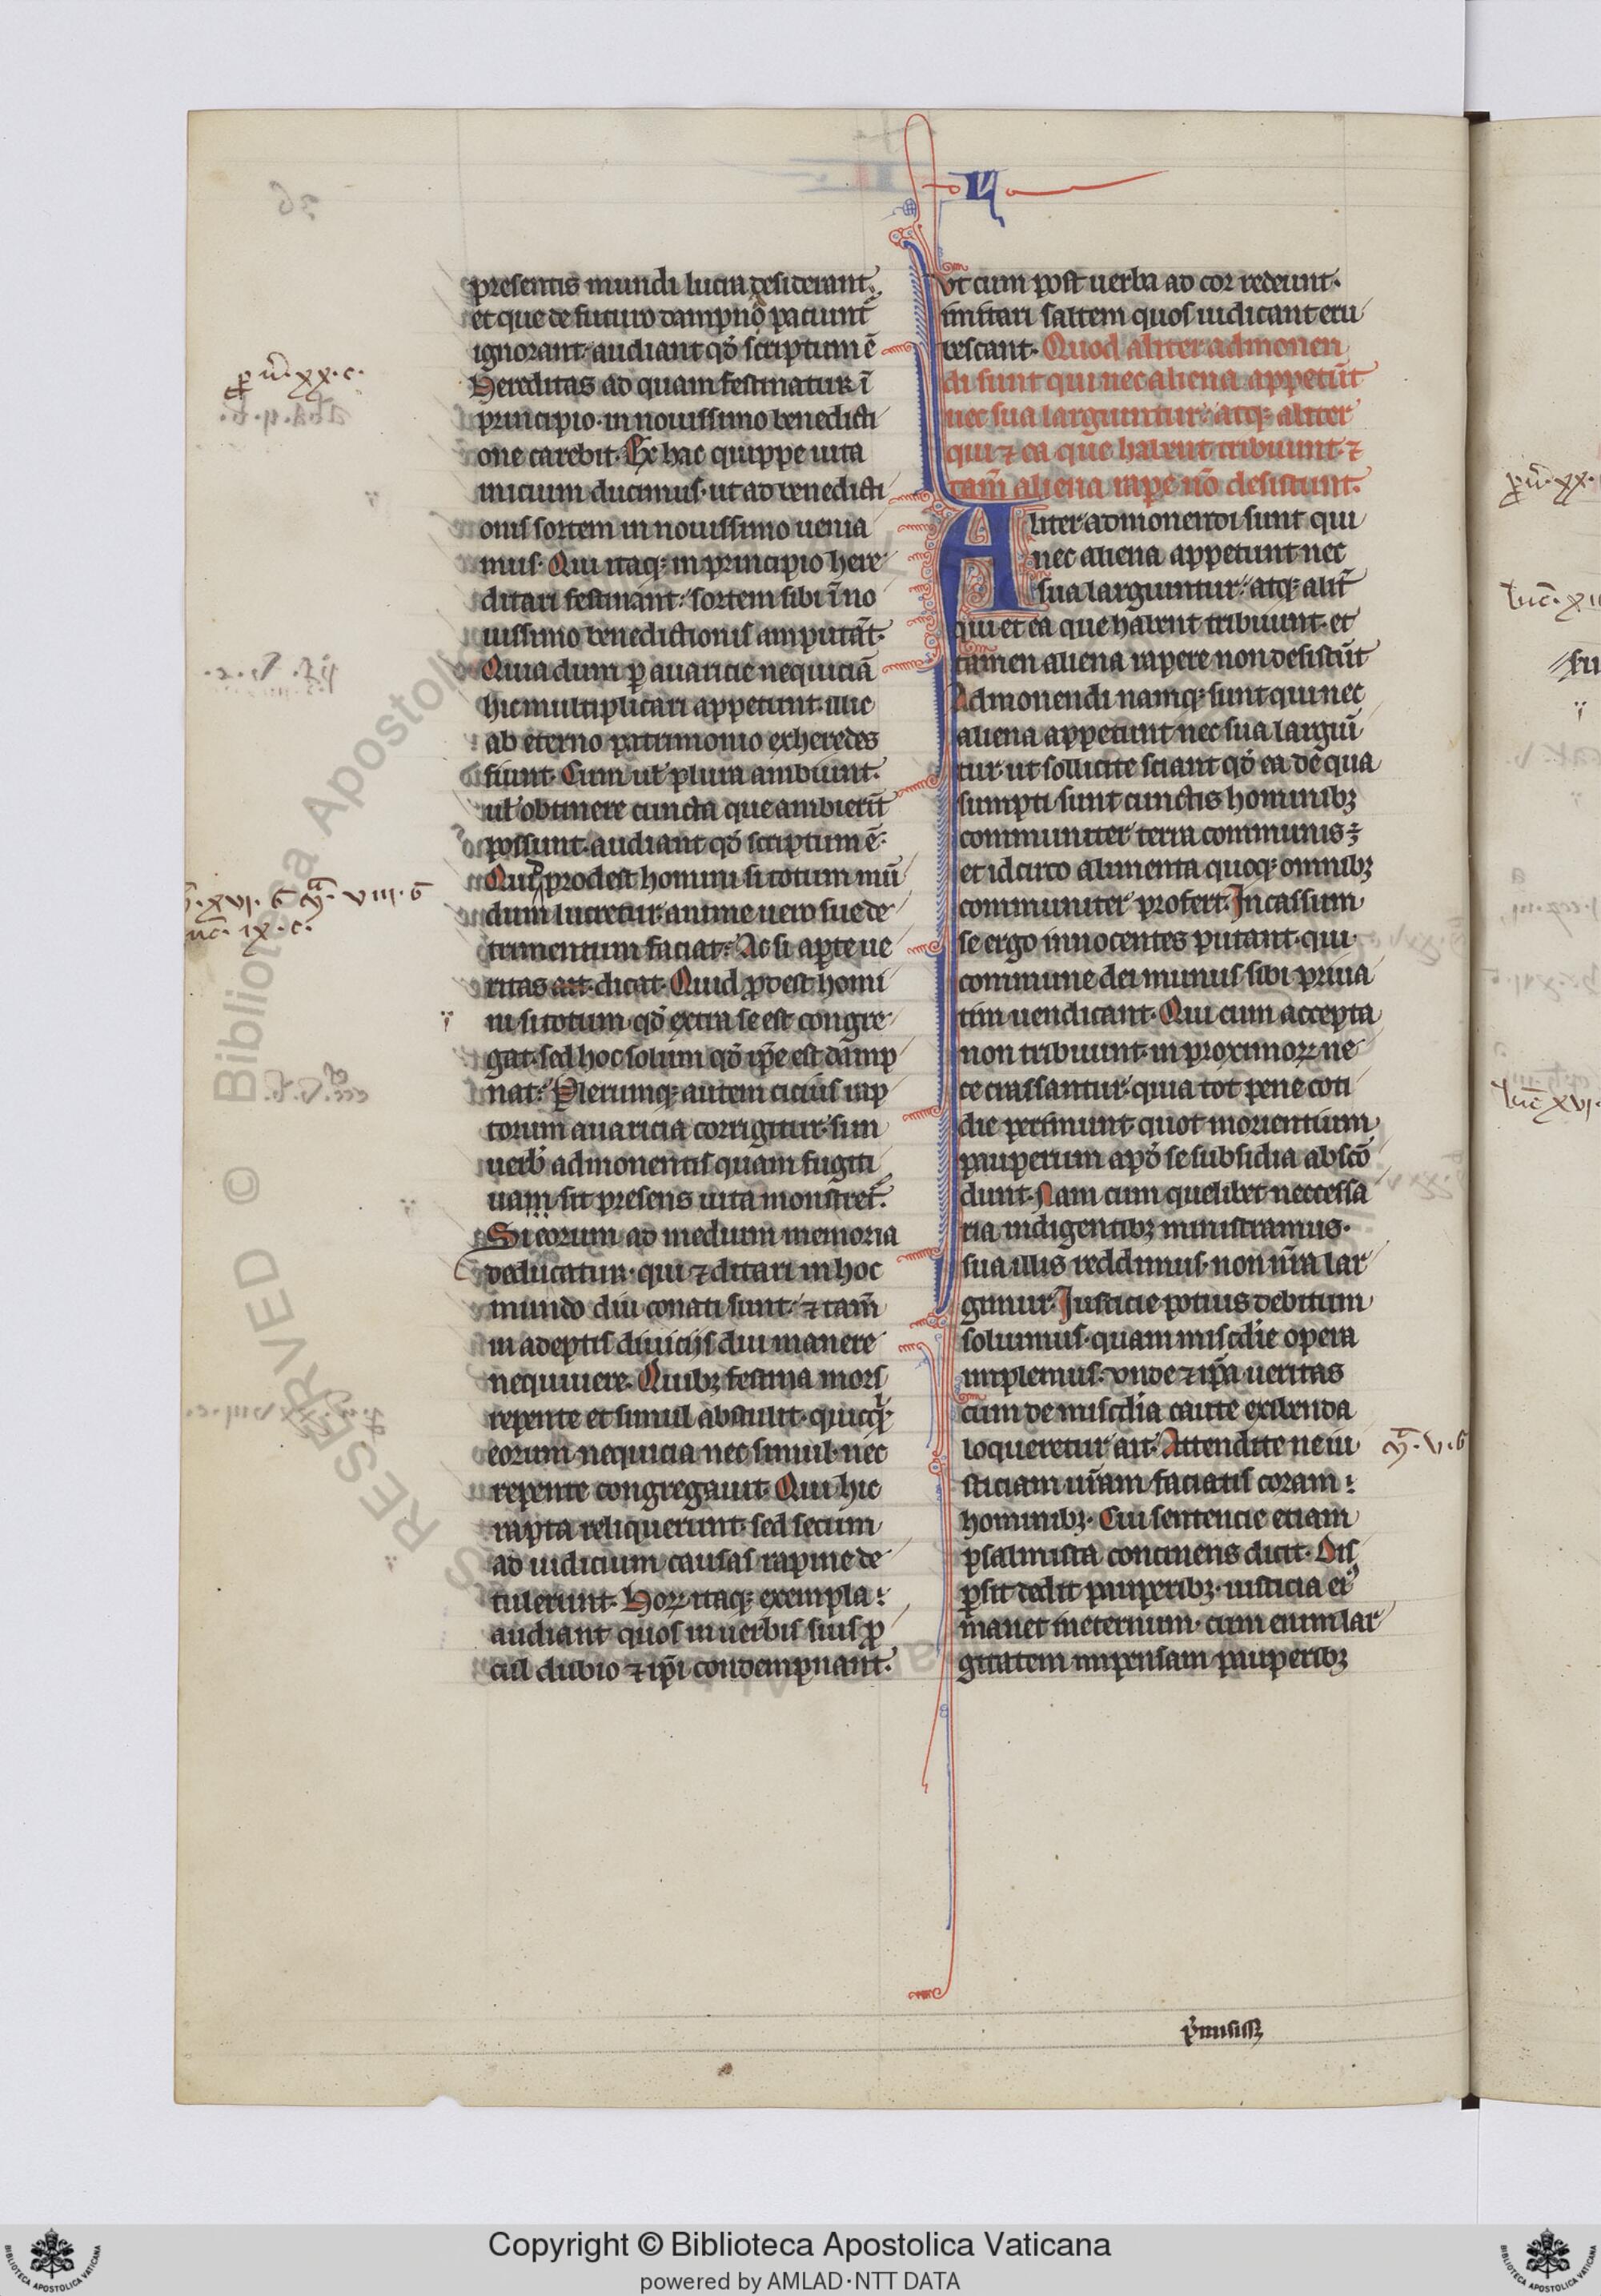 IIJ
presentis mundi lucra desiderant.
et que de futuro dampno paciunt̄
ignorant. audiant qđ scriptum ē
Hereditas ad quam festinatur ī
principio. in nouissimo benedicti
one carebit. Ex hac quippe uita
inicium ducimus. ut ad benedicti
onis sortem in nouissimo uenia
mus. Qui itaq; in principio here
ditari festinant: sortem sibi ī no
uissimo benedictionis amputāt.
Quia dum ꝑ auaricie nequiciā
hic multiplicari appetunt. illic
ab eterno patrimonio exheredes
fiunt. Cum uł plura ambiunt.
uł obtinere cuncta que ambierūt
possunt. audiant qđ scriptum ē.
Quid prodest homini si totum mū
dum lucretur. anime uero sue de
trimentum faciat: Ac si aꝑte ue
ritas ait. dicat. Quid ꝓdest homi
ni si totum qđ extra se est congre
gat. sed hoc solum qđ ip̄e est damp
nat: Plerumq; autem cicius rap
torum auaricia corrigitur. si in
uerb̛ admonentis quam fugiti
uam sit presens uita monstret̄.
Si eorum ad medium memoria
deducatur. qui ⁊ ditari in hoc
mundo diu conati sunt. ⁊ tam̄
in adeptis diuicijs diu manere
nequiuere. Quibꝫ festina mors
repente et simul abstulit. quicq̛
eorum nequicia nec simul. nec
repente congregauit. Qui hic
rapta reliquerunt. sed secum
ad iudicium causas rapine de
tulerunt. Hoꝝ itaq; exempla:
audiant quos in uerbis suis ꝓ
cul dubio ⁊ ip̄i condempnant.
vt cum post uerba ad cor redeunt.
imitari saltem quos iudicant eru
bescant. Quod aliter admonen
di sunt qui nec aliena appetūt
nec sua larguntur. atq; aliter
qui ⁊ ea que habent tribuunt. ⁊
tam̄ aliena raꝑe nō desistunt.
Aliter admonendi sunt qui
nec aliena appetunt nec
sua larguntur: atq; alit̄
qui et ea que habent tribuunt. et
tamen aliena rapere non desistūt
Admonendi namq; sunt qui nec
aliena appetunt nec sua largiū
tur. ut sollicite sciant qđ ea de qua
sumpti sunt cunctis hominibꝫ
communiter terra communis ē
et idcirco alimenta quoq; omnibꝫ
communiter profert. Incassum
se ergo innocentes putant. qui
commune dei munus sibi priua
tim uendicant. Qui cum accepta
non tribuunt. in proximoꝝ ne
ce crassantur. quia tot pene coti
die perimunt quot morientium
pauperum apđ se subsidia abscō
dunt. Nam cum quelibet neccessa
ria indigentibꝫ ministramus.
sua illis reddimus. non nr̄a lar
gimur. Iusticie potius debitum
soluimus. quam miscdīe opera
implemus. vnde ⁊ ip̄a ueritas
cum de miscdīa caute exibenda
loqueretur ait. Attendite ne iu
sticiam ur̄am faciatis coram:
hominibꝫ. Cui sentencie etiam
psalmista concinens dicit. Dis
ꝑsit dedit pauperibꝫ. iusticia ei9
manet ineternum. cum enim lar
gitatem inpensam pauperibꝫ
p̄misissꝫ
ꝓu̅. xx. c.
xvi. G mͣ. viii. G
uc̄. ix. c.
ÿ
mͣ. v. G
ꝓu̅. xx.
luc̄. x
luc̄ xvi.
Copyright © Biblioteca Apostolica Vaticana
powered by AMLAD·NTT DATA